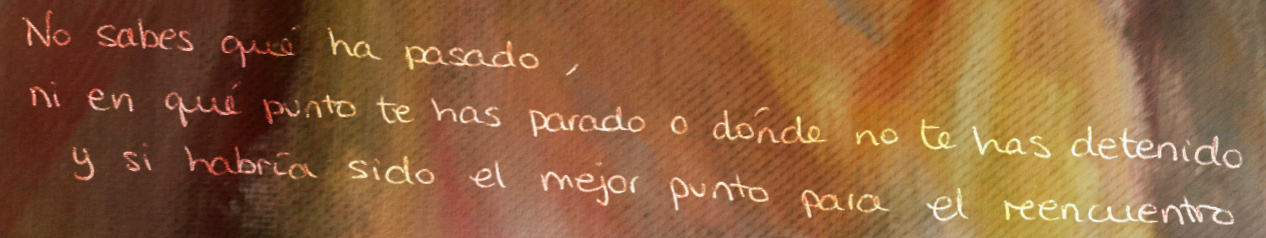 No sabes qué ha pasado,
ni en qué punto te has parado o dónde no te has detenido
y si habría sido el mejor punto para el reencuentro